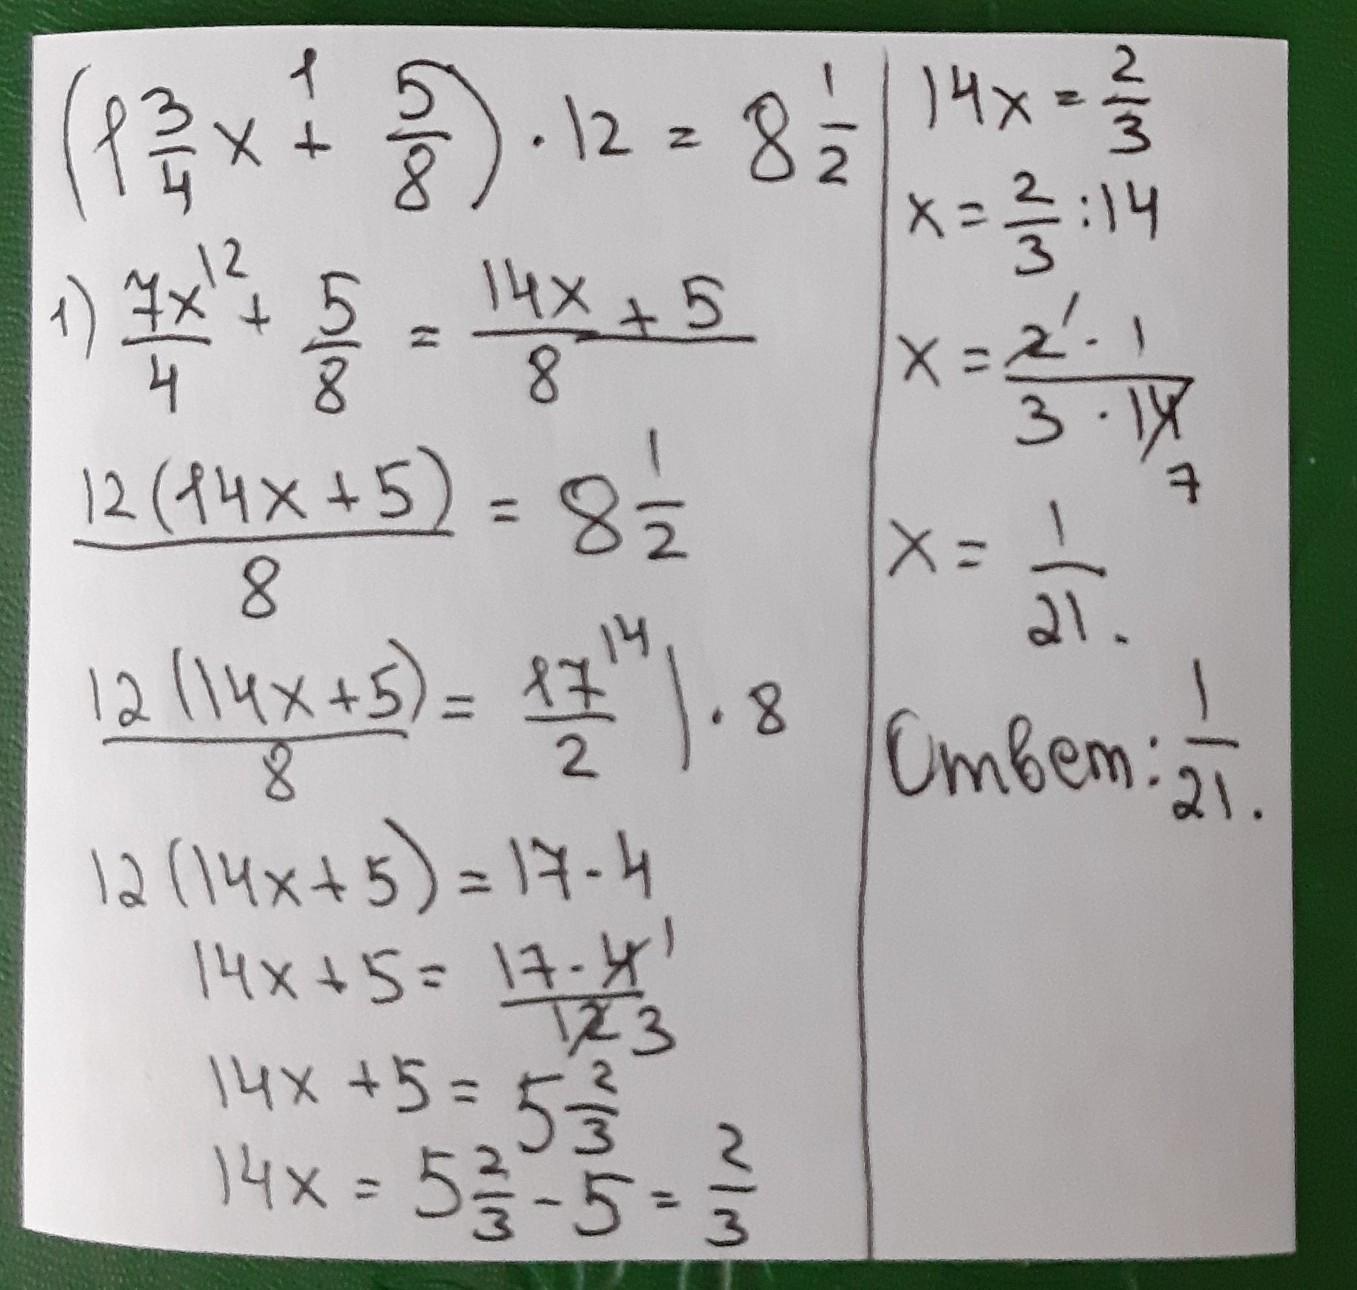 (1 3/4 x + 5/8) · 12 = 8 1/2
1) 7x/4 + 5/8 = (14x + 5)/8
12(14x+5)/8 = 8 1/2
12(14x+5)/8 = 17/2 | · 8
12(14x+5) = 17 · 4
14x+5 = 17·4/12 1 3
14x+5 = 5 2/3
14x = 5 2/3 - 5 = 2/3
14x = 2/3
x = 2/3 : 14
x = 2·1/3·14 1 7
x = 1/21.
Ответ: 1/21.